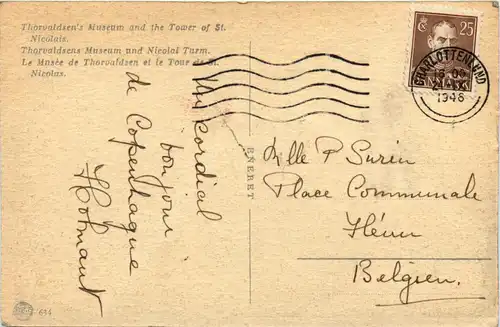 Thorvaldsen's Museum and the Tower of St.
Nicolais.
Thorvaldsens Museum und Nicolai Turm.
Le Musée de Thorvaldsen et le Tour de St.
Nicolas.
25
CHARLOTTENLUND
1948
Un cordial
bonjour
de Copenhague
ENERET
Mlle P Surin
Place Communale
Belgien.